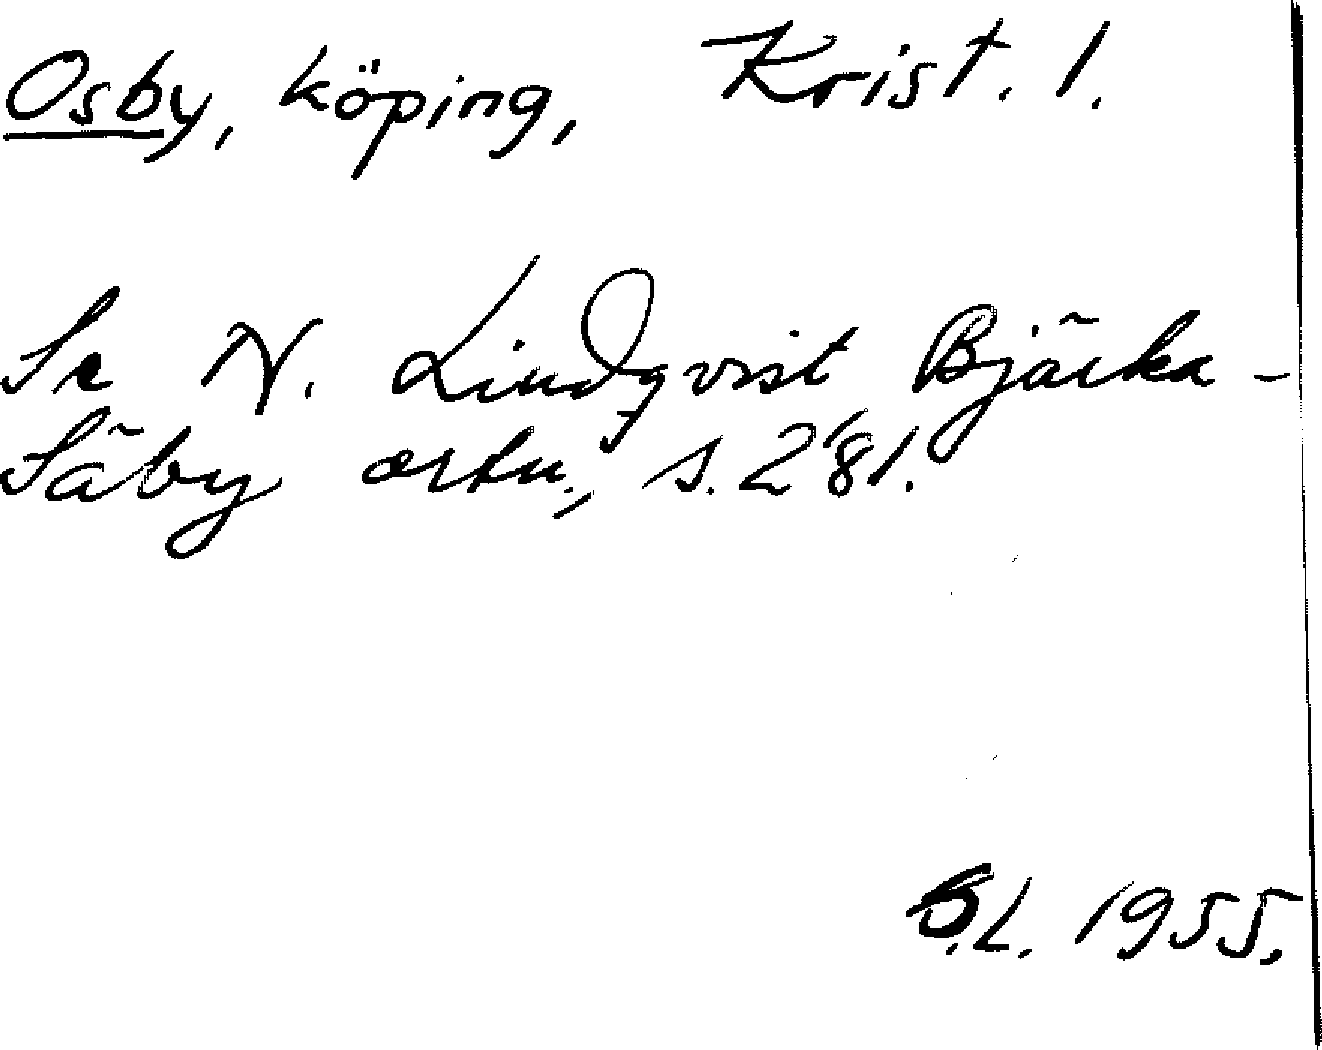 Osby, köping, Krist. l.
Se N. Lindqvist Bjärka-
Säby ortn., s. 281.
G.L. 1955.